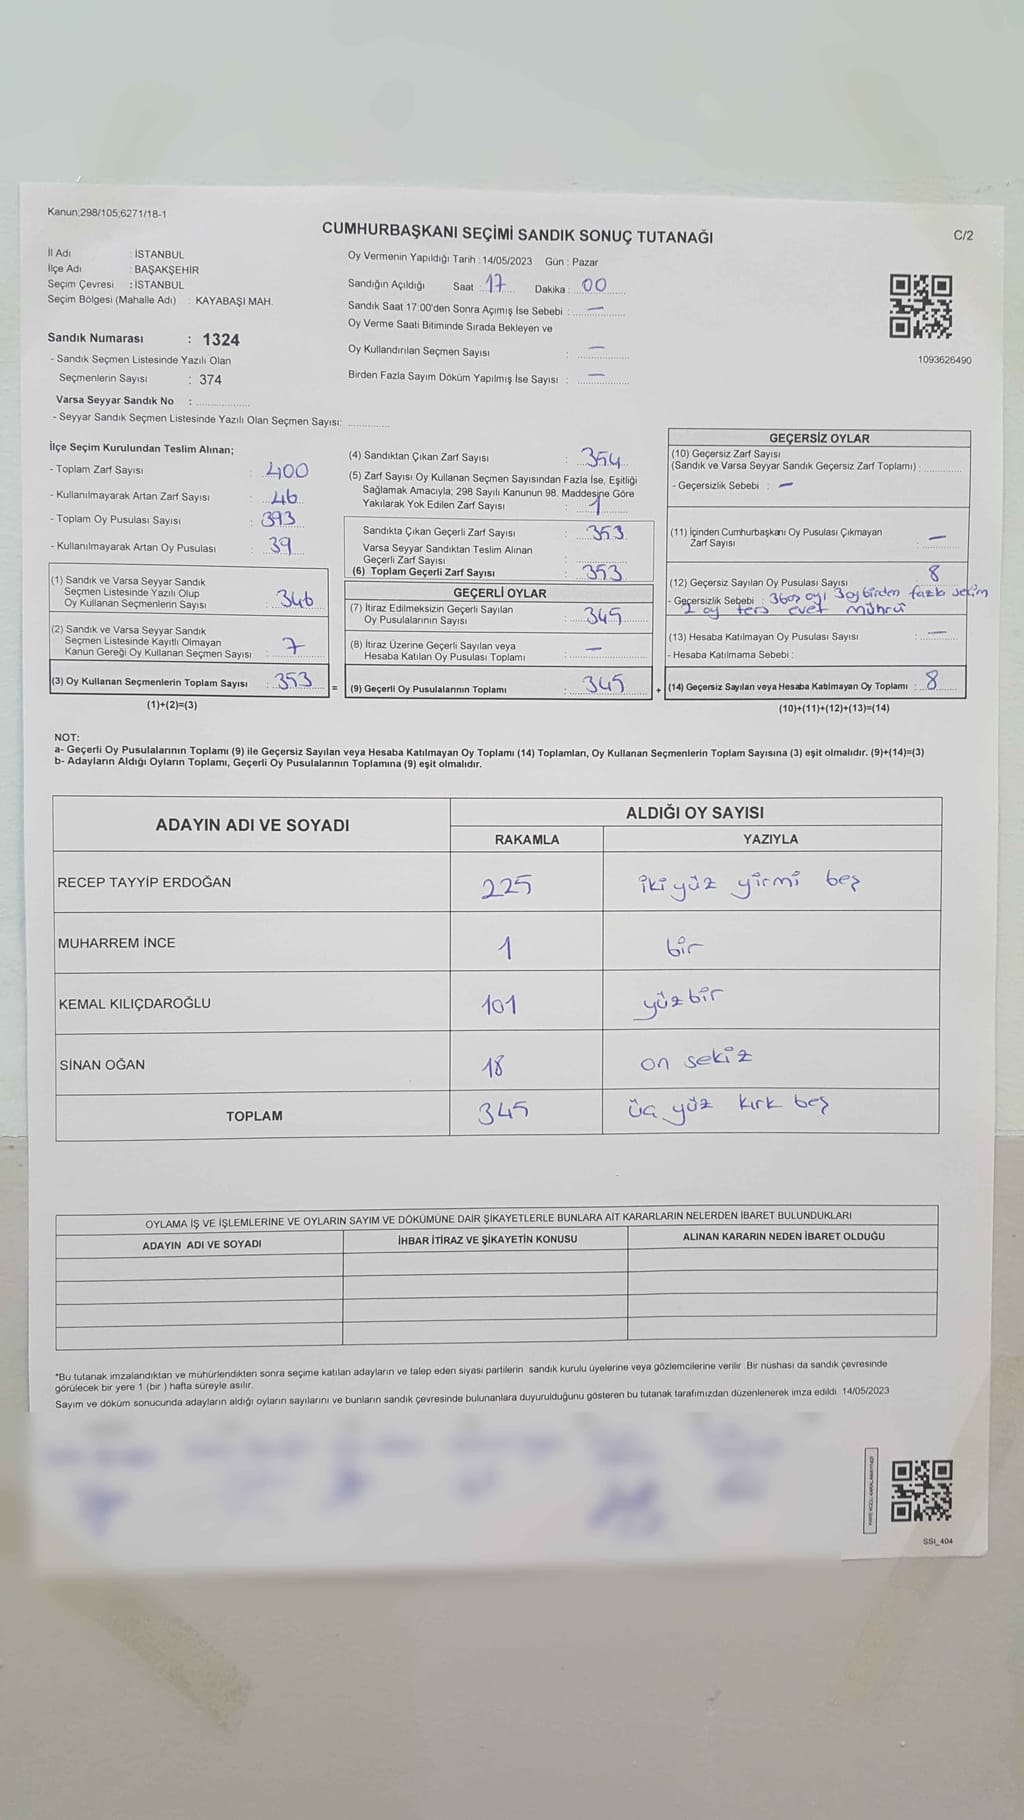 Kanun;298/105;6271/18-1
CUMHURBAŞKANI SEÇİMİ SANDIK SONUÇ TUTANAĞI
C/2
İl Adı : İSTANBUL
İlçe Adı : BAŞAKŞEHİR
Seçim Çevresi : İSTANBUL
Seçim Bölgesi (Mahalle Adı) : KAYABAŞI MAH.
Sandık Numarası : 1324
- Sandık Seçmen Listesinde Yazılı Olan
Seçmenlerin Sayısı : 374
Varsa Seyyar Sandık No :
- Seyyar Sandık Seçmen Listesinde Yazılı Olan Seçmen Sayısı:
Oy Vermenin Yapıldığı Tarih : 14/05/2023 Gün : Pazar
Sandığın Açıldığı Saat : 17 Dakika : 00
Sandık Saat 17:00'den Sonra Açımış İse Sebebi : —
Oy Verme Saati Bitiminde Sırada Bekleyen ve
Oy Kullandırılan Seçmen Sayısı : —
Birden Fazla Sayım Döküm Yapılmış İse Sayısı : —
1093626490
İlçe Seçim Kurulundan Teslim Alınan;
- Toplam Zarf Sayısı : 400
- Kullanılmayarak Artan Zarf Sayısı : 46
- Toplam Oy Pusulası Sayısı : 393
- Kullanılmayarak Artan Oy Pusulası : 39
(1) Sandık ve Varsa Seyyar Sandık
Seçmen Listesinde Yazılı Olup
Oy Kullanan Seçmenlerin Sayısı : 346
(2) Sandık ve Varsa Seyyar Sandık
Seçmen Listesinde Kayıtlı Olmayan
Kanun Gereği Oy Kullanan Seçmen Sayısı : 7
(3) Oy Kullanan Seçmenlerin Toplam Sayısı : 353
(1)+(2)=(3)
=
(4) Sandıktan Çıkan Zarf Sayısı : 354
(5) Zarf Sayısı Oy Kullanan Seçmen Sayısından Fazla İse, Eşitliği
Sağlamak Amacıyla; 298 Sayılı Kanunun 98. Maddesine Göre
Yakılarak Yok Edilen Zarf Sayısı : 1
Sandıkta Çıkan Geçerli Zarf Sayısı : 353
Varsa Seyyar Sandıktan Teslim Alınan
Geçerli Zarf Sayısı :
(6) Toplam Geçerli Zarf Sayısı : 353
GEÇERLİ OYLAR
(7) İtiraz Edilmeksizin Geçerli Sayılan
Oy Pusulalarının Sayısı : 345
(8) İtiraz Üzerine Geçerli Sayılan veya
Hesaba Katılan Oy Pusulası Toplamı : —
(9) Geçerli Oy Pusulalarının Toplamı : 345
+
GEÇERSİZ OYLAR
(10) Geçersiz Zarf Sayısı
(Sandık ve Varsa Seyyar Sandık Geçersiz Zarf Toplamı) :
- Geçersizlik Sebebi : —
(11) İçinden Cumhurbaşkanı Oy Pusulası Çıkmayan
Zarf Sayısı : —
(12) Geçersiz Sayılan Oy Pusulası Sayısı : 8
- Geçersizlik Sebebi : oyu 3 oy birden fazla seçim
2 oy ters evet mührü
(13) Hesaba Katılmayan Oy Pusulası Sayısı : —
- Hesaba Katılmama Sebebi :
(14) Geçersiz Sayılan veya Hesaba Katılmayan Oy Toplamı : 8
(10)+(11)+(12)+(13)=(14)
NOT:
a- Geçerli Oy Pusulalarının Toplamı (9) ile Geçersiz Sayılan veya Hesaba Katılmayan Oy Toplamı (14) Toplamları, Oy Kullanan Seçmenlerin Toplam Sayısına (3) eşit olmalıdır. (9)+(14)=(3)
b- Adayların Aldığı Oyların Toplamı, Geçerli Oy Pusulalarının Toplamına (9) eşit olmalıdır.
ADAYIN ADI VE SOYADI
ALDIĞI OY SAYISI
RAKAMLA YAZIYLA
RECEP TAYYİP ERDOĞAN 225 iki yüz yirmi beş
MUHARREM İNCE 1 bir
KEMAL KILIÇDAROĞLU 101 yüz bir
SİNAN OĞAN 18 on sekiz
TOPLAM 345 üç yüz kırk beş
OYLAMA İŞ VE İŞLEMLERİNE VE OYLARIN SAYIM VE DÖKÜMÜNE DAİR ŞİKAYETLERLE BUNLARA AİT KARARLARIN NELERDEN İBARET BULUNDUKLARI
ADAYIN ADI VE SOYADI İHBAR İTİRAZ VE ŞİKAYETİN KONUSU ALINAN KARARIN NEDEN İBARET OLDUĞU
*Bu tutanak imzalandıktan ve mühürlendikten sonra seçime katılan adayların ve talep eden siyasi partilerin sandık kurulu üyelerine veya gözlemcilerine verilir .Bir nüshası da sandık çevresinde
görülecek bir yere 1 (bir ) hafta süreyle asılır.
Sayım ve döküm sonucunda adayların aldığı oyların sayılarını ve bunların sandık çevresinde bulunanlara duyurulduğunu gösteren bu tutanak tarafımızdan düzenlenerek imza edildi. 14/05/2023
SSI_404